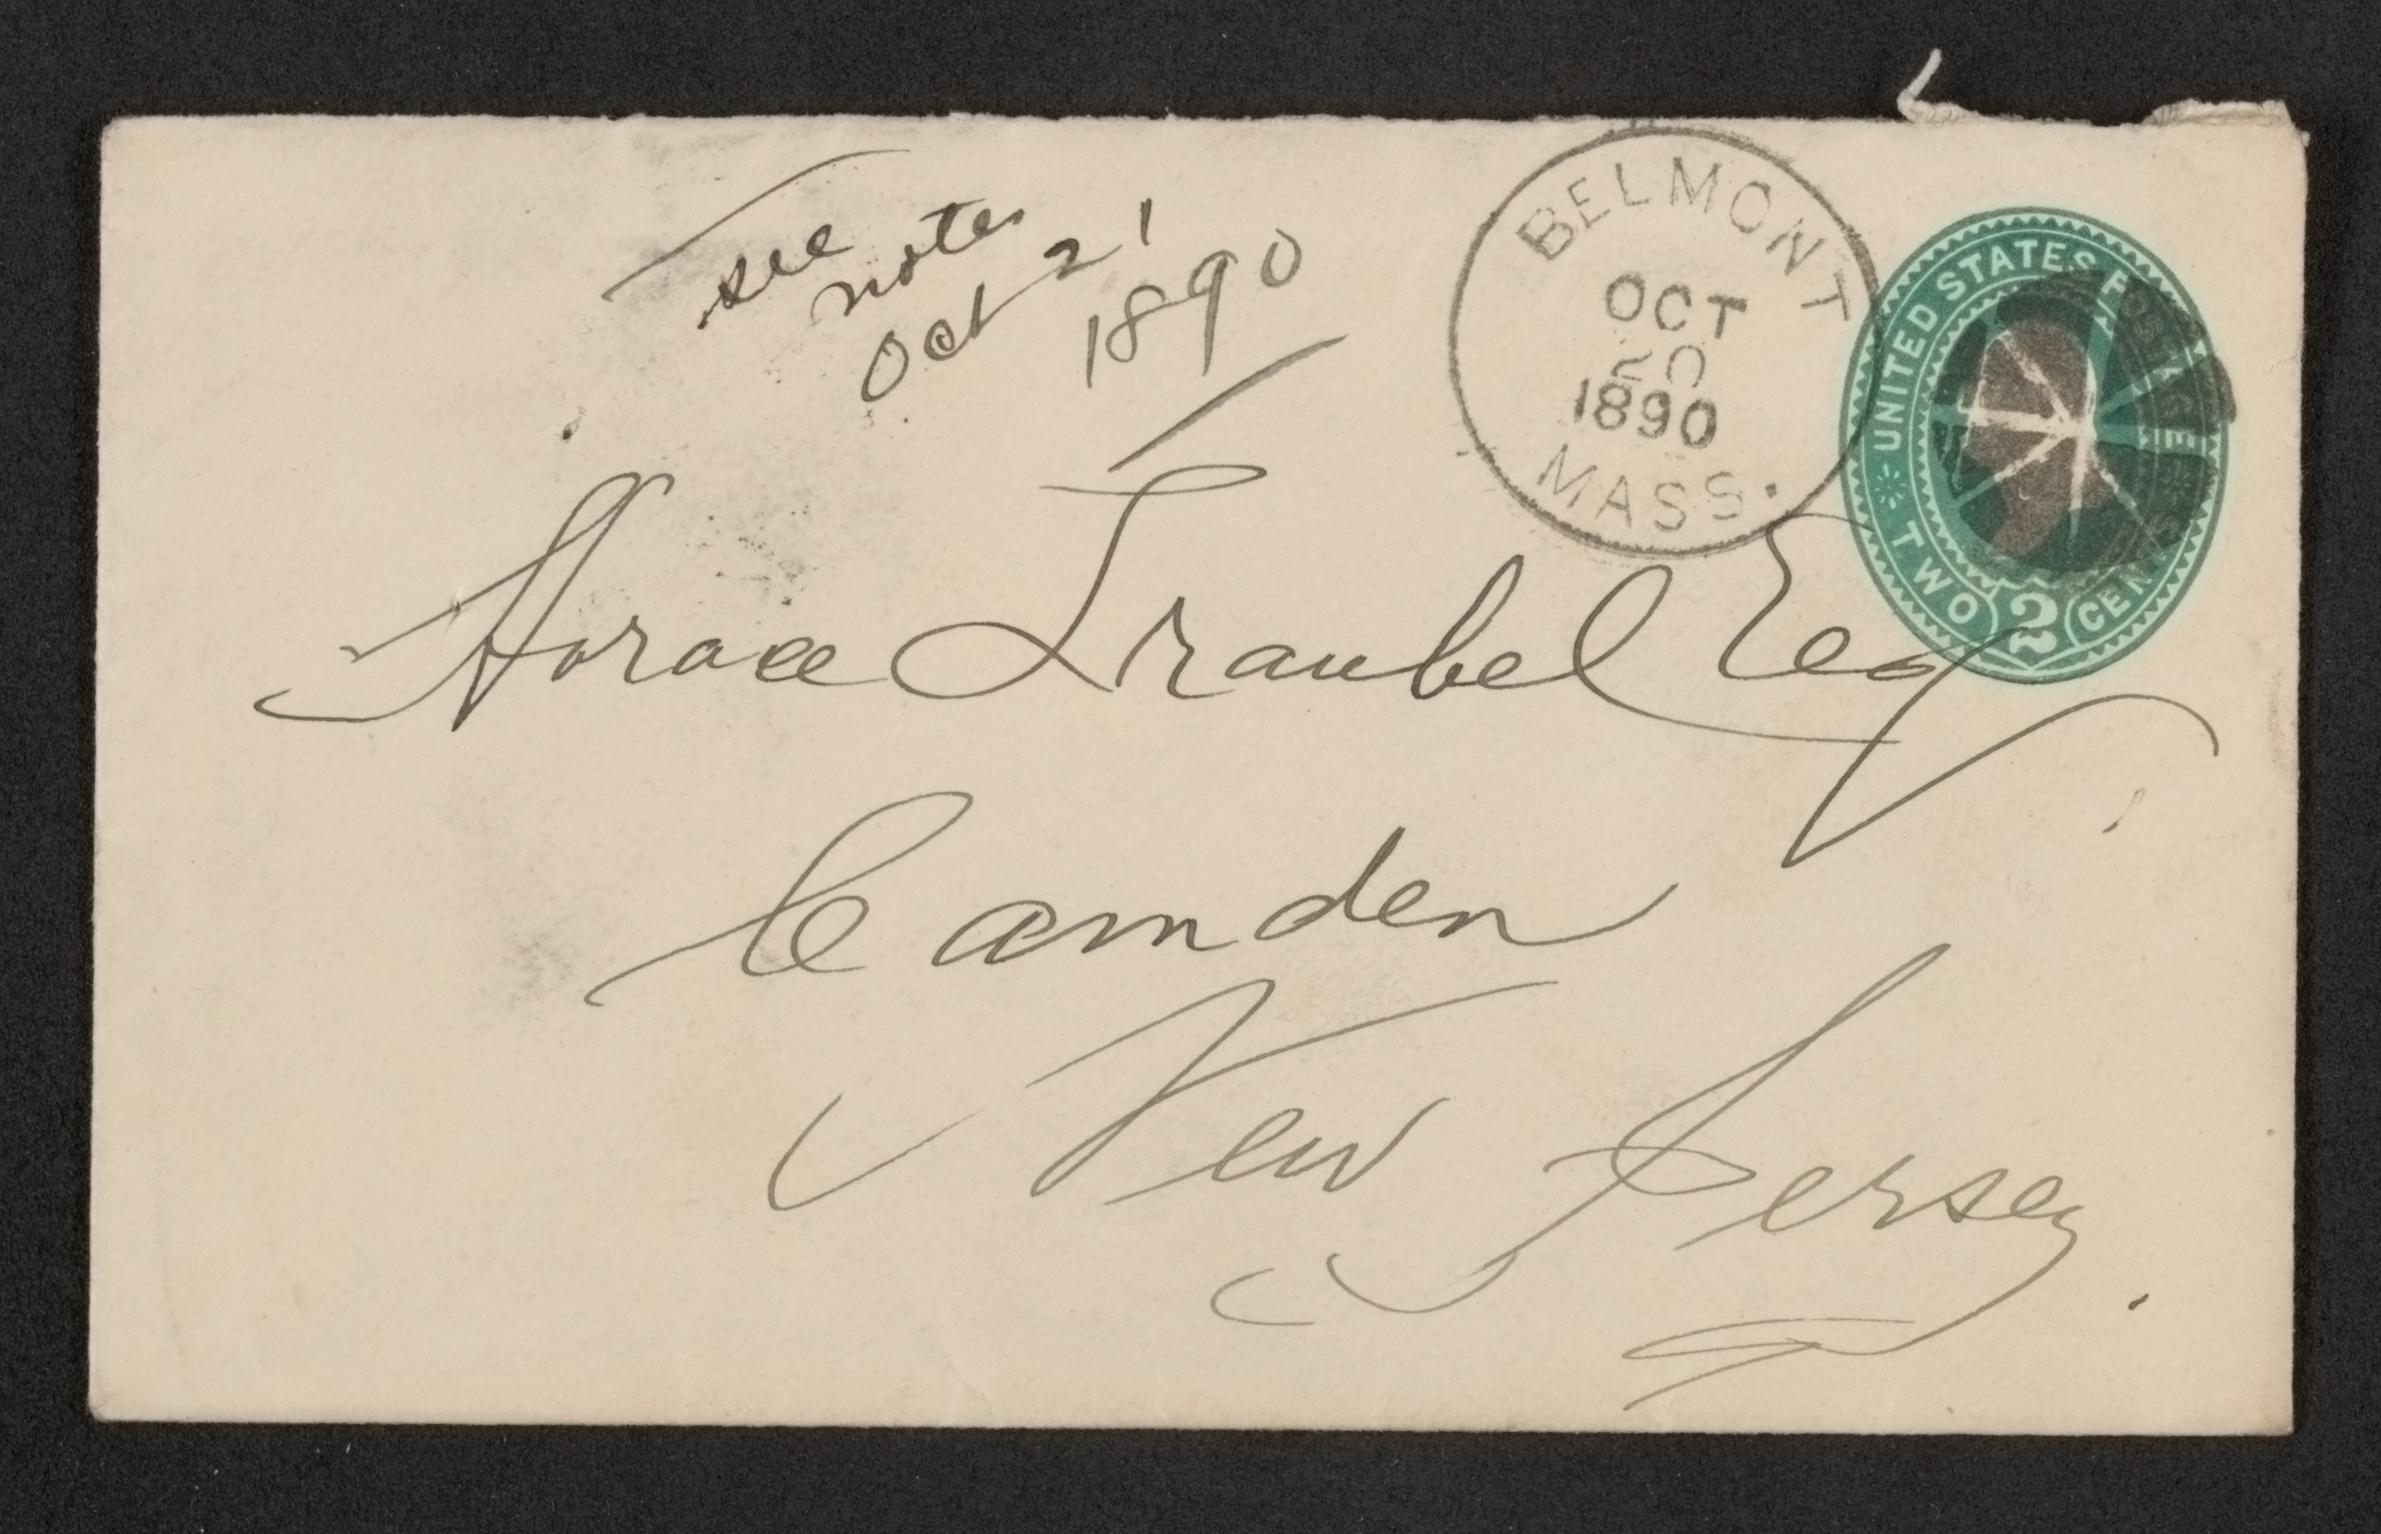 see
notes
Oct 21
1890
BELMONT
OCT
20
1890
MASS.
UNITED STATES POSTAGE
TWO 2 CENTS
Horace Traubel Esq
Camden
New Jersey.